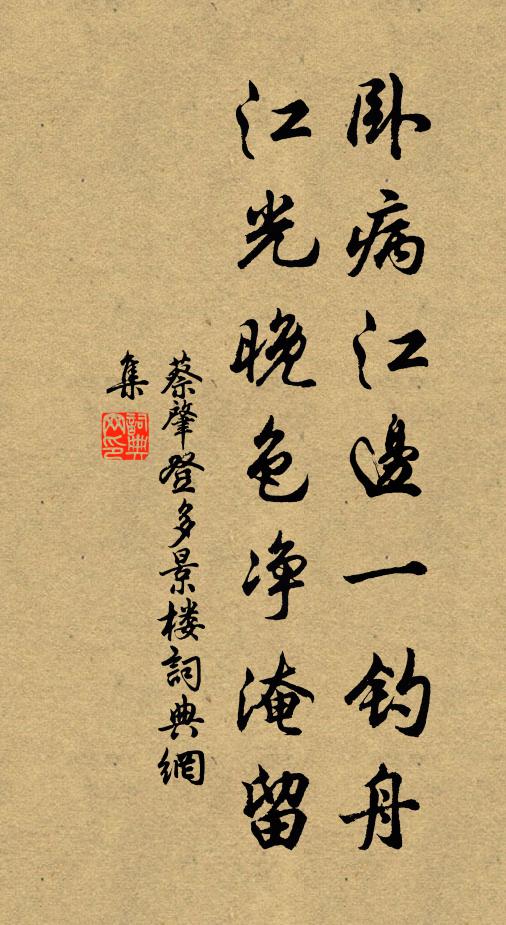 卧病江邊一钓舟
江光晚色净淹留
蔡肇登多景楼詞典網
集
詞典
网印